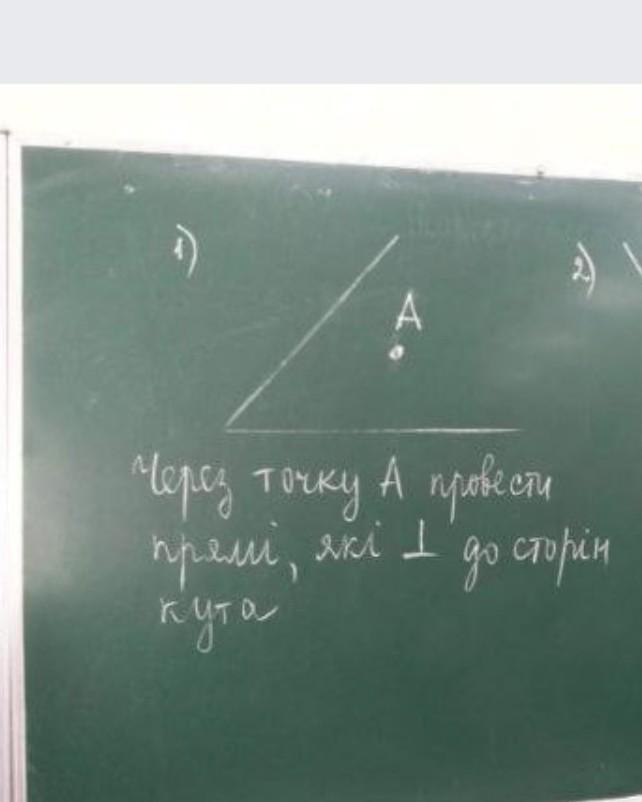 1)
2)
A
Через точку А провести
прямі, які ⊥ до сторін
кута